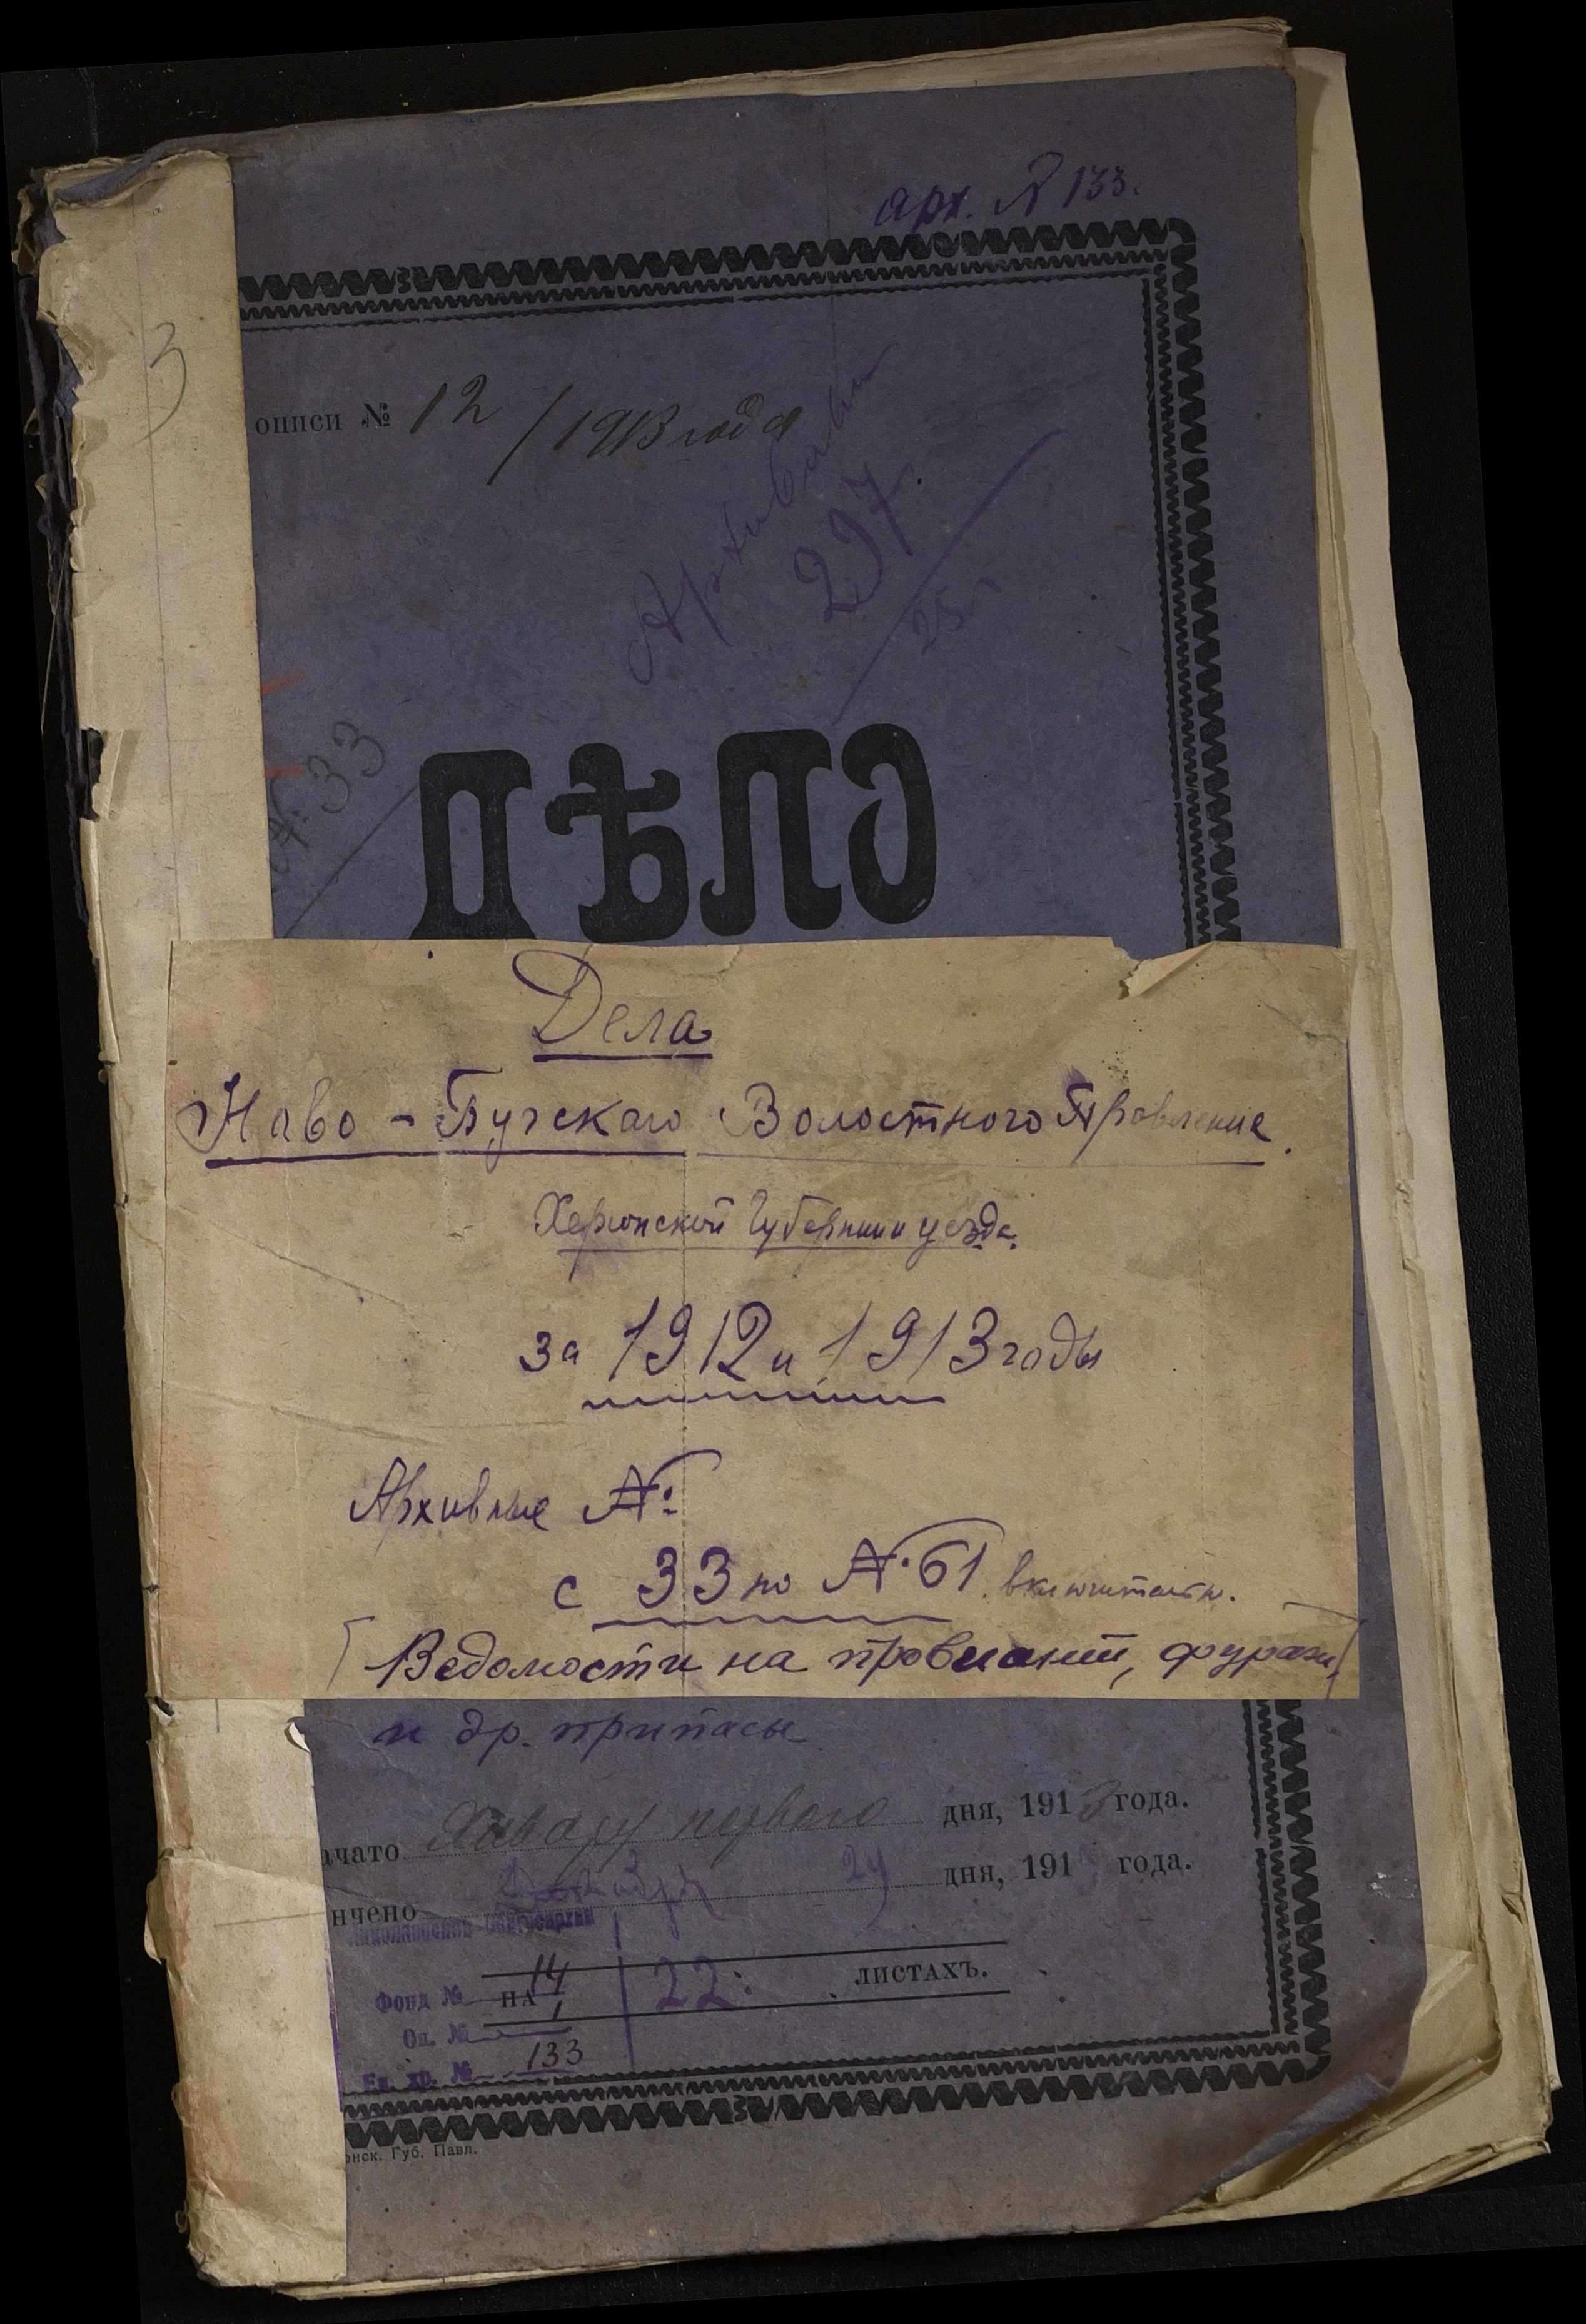 арх. № 133.
3
описи № 12 / 1913 года
297
33
ДѢЛО
Дела
Ново-Бугскаго Волостного Правление.
Херсонской Губернии уезда.
за 1912 и 1913 годы
Архивные №
с 33 по № 61 включительн.
Ведомости на провиант, фураж
и др. припасы
ачато Январу первого дня, 1913 года.
нчено Декабря 24 дня, 191 года.
Фонд № 14
на 22 листахъ.
Оп. № 1
Ед. хр. № 133
онск. Губ. Павл.